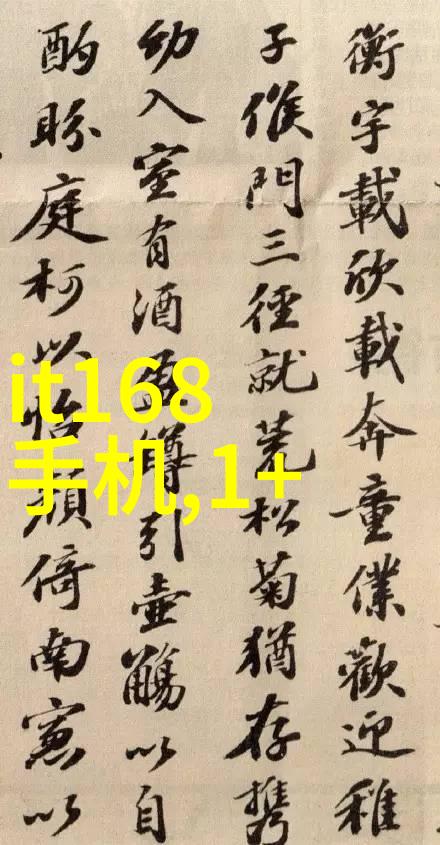 衡宇載欣載奔童僕歡迎稚
子候門三徑就荒松菊猶存携
幼入室有酒盈樽引壺觴以自
酌眄庭柯以怡顏倚南窻以
it168
手机,1+